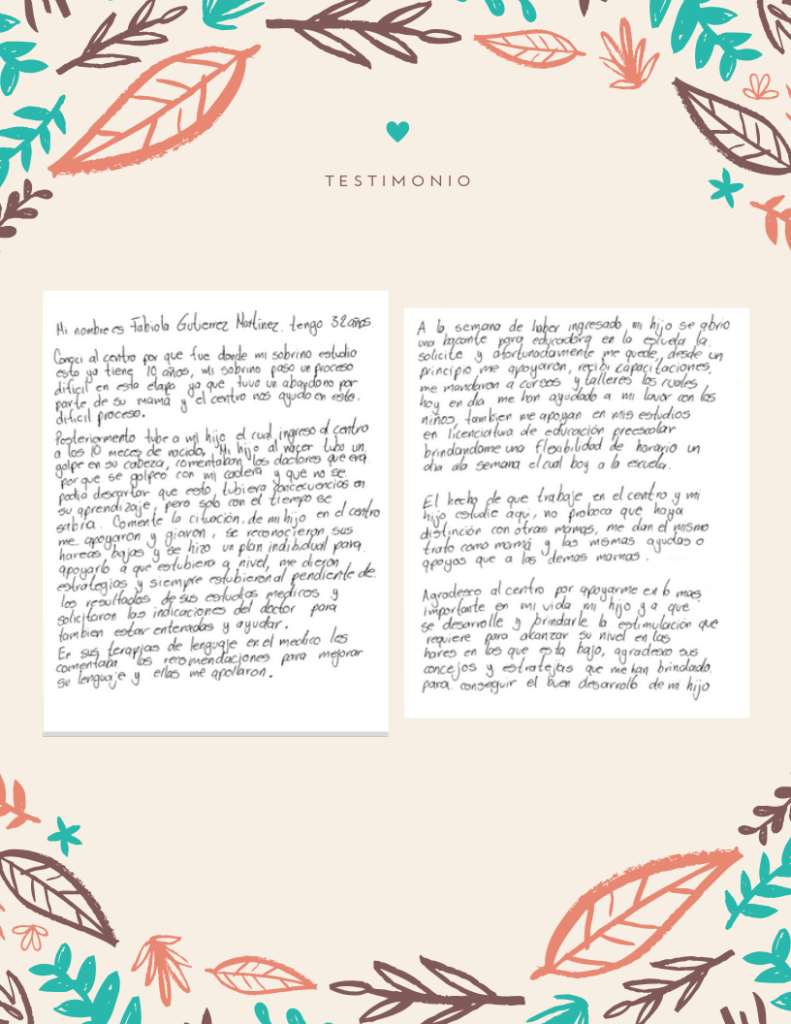 TESTIMONIO
Mi nombre es Fabiola Gutierrez Martinez. tengo 32 años.
Conoci al centro por que fue donde mi sobrino estudio
esto ya tiene 10 años, mi sobrino paso un proceso
dificil en esta etapa ya que tuvo un abandono por
parte de su mamá y el centro nos ayudo en este.
dificil proceso.
Posteriormento tube a mi hijo el cual ingreso al centro
a los 10 meces de nacido, Mi hijo al nacer tubo un
golpe en su cabeza, comentaban los doctores que era
porque se golpeó con mi cadera y que no se
podia descartar que esto tubiera concecuencias en
su aprendizaje, pero solo con el tiempo se
sabría. Comente la cituación de mi hijo en el centro
me apoyaron y giaron, se reconocieron sus
hareas bajas y se hizo un plan indibidual para
apoyarlo a que estubiera a nivel, me dieron
estrategias y siempre estubieron al pendiente de
los resultados de sus estudios medicos y
solicitaron las indicaciones del doctor para
tambien estar enteradas y ayudar.
En sus terapias de lenguaje en el medico les
comentaba las recomendaciones para mejorar
su lenguaje y ellas me apollaron.
A la semana de haber ingresado mi hijo se abrio
una bacante para educadora en la escuela la
solicite y afortunadamente me quede, desde un
principio me apoyaron, recibi capacitaciones,
me mandaron a cursos y talleres los cuales
hoy en dia me han ayudado a mi lavor con los
niños, tambien me apoyan en mis estudios
en licenciatura de educación preescolar
brindandome una flexibilidad de horario un
dia ala semana el cual boy a la escuela.
El hecho de que trabaje en el centro y mi
hijo estudie aqui, no proboca que haya
distinción con otras mamas, me dan el mismo
trato como mamá y las mismas ayudas o
apoyos que a las demas mamas.
Agradesco al centro por apoyarme en lo mas
importante en mi vida mi hijo ya que
se desarrolle y brindarle la estimulación que
requiere para alcanzar su nivel en las
hares en los que esta bajo, agradesco sus
concejos y estratejas que me han brindado
para conseguir el buen desarrollo de mi hijo